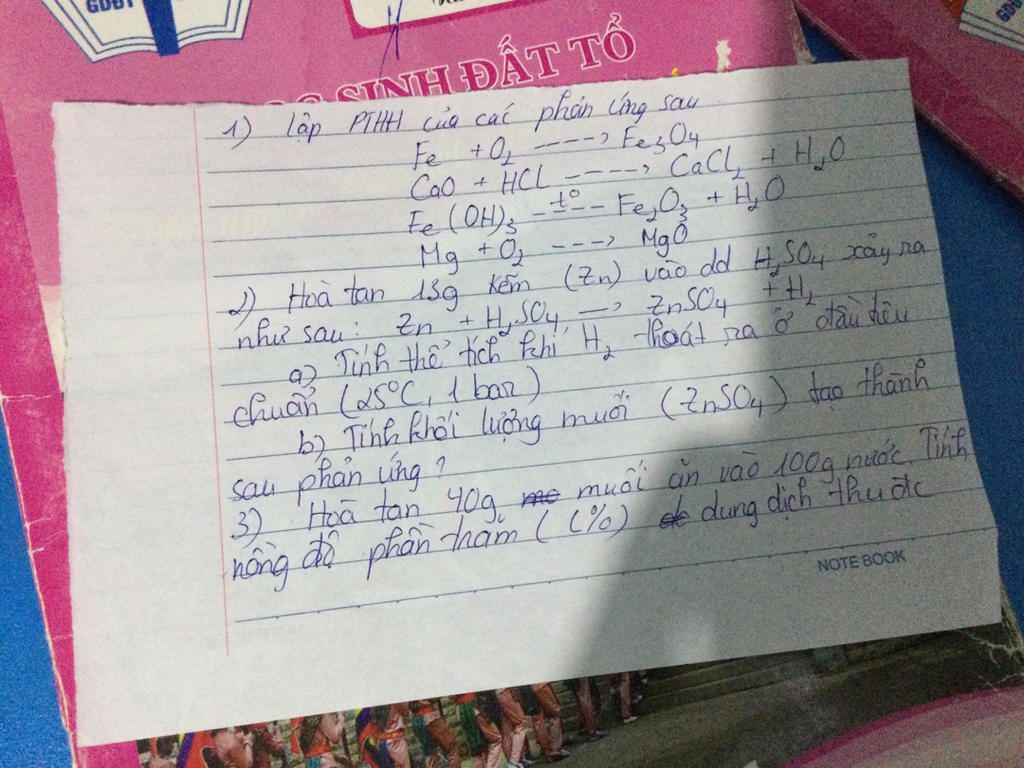 GDĐT
GDĐT
SINH ĐẤT TỔ
1) lập PTHH của các phản ứng sau
Fe + O2 ----> Fe3O4
CaO + HCl ----> CaCl2 + H2O
Fe(OH)3 -t°-- Fe2O3 + H2O
Mg + O2 ---> MgO
2) Hoà tan 13g kẽm (Zn) vào dd H2SO4 xảy ra
như sau: Zn + H2SO4 → ZnSO4 + H2
a) Tính thể tích khí H2 thoát ra ở điều kiện
chuẩn (25°C, 1 bar)
b) Tính khối lượng muối (ZnSO4) tạo thành
sau phản ứng?
3) Hoà tan 40g muối ăn vào 100g nước. Tính
nồng độ phần trăm (C%) dung dịch thu đc
NOTE BOOK